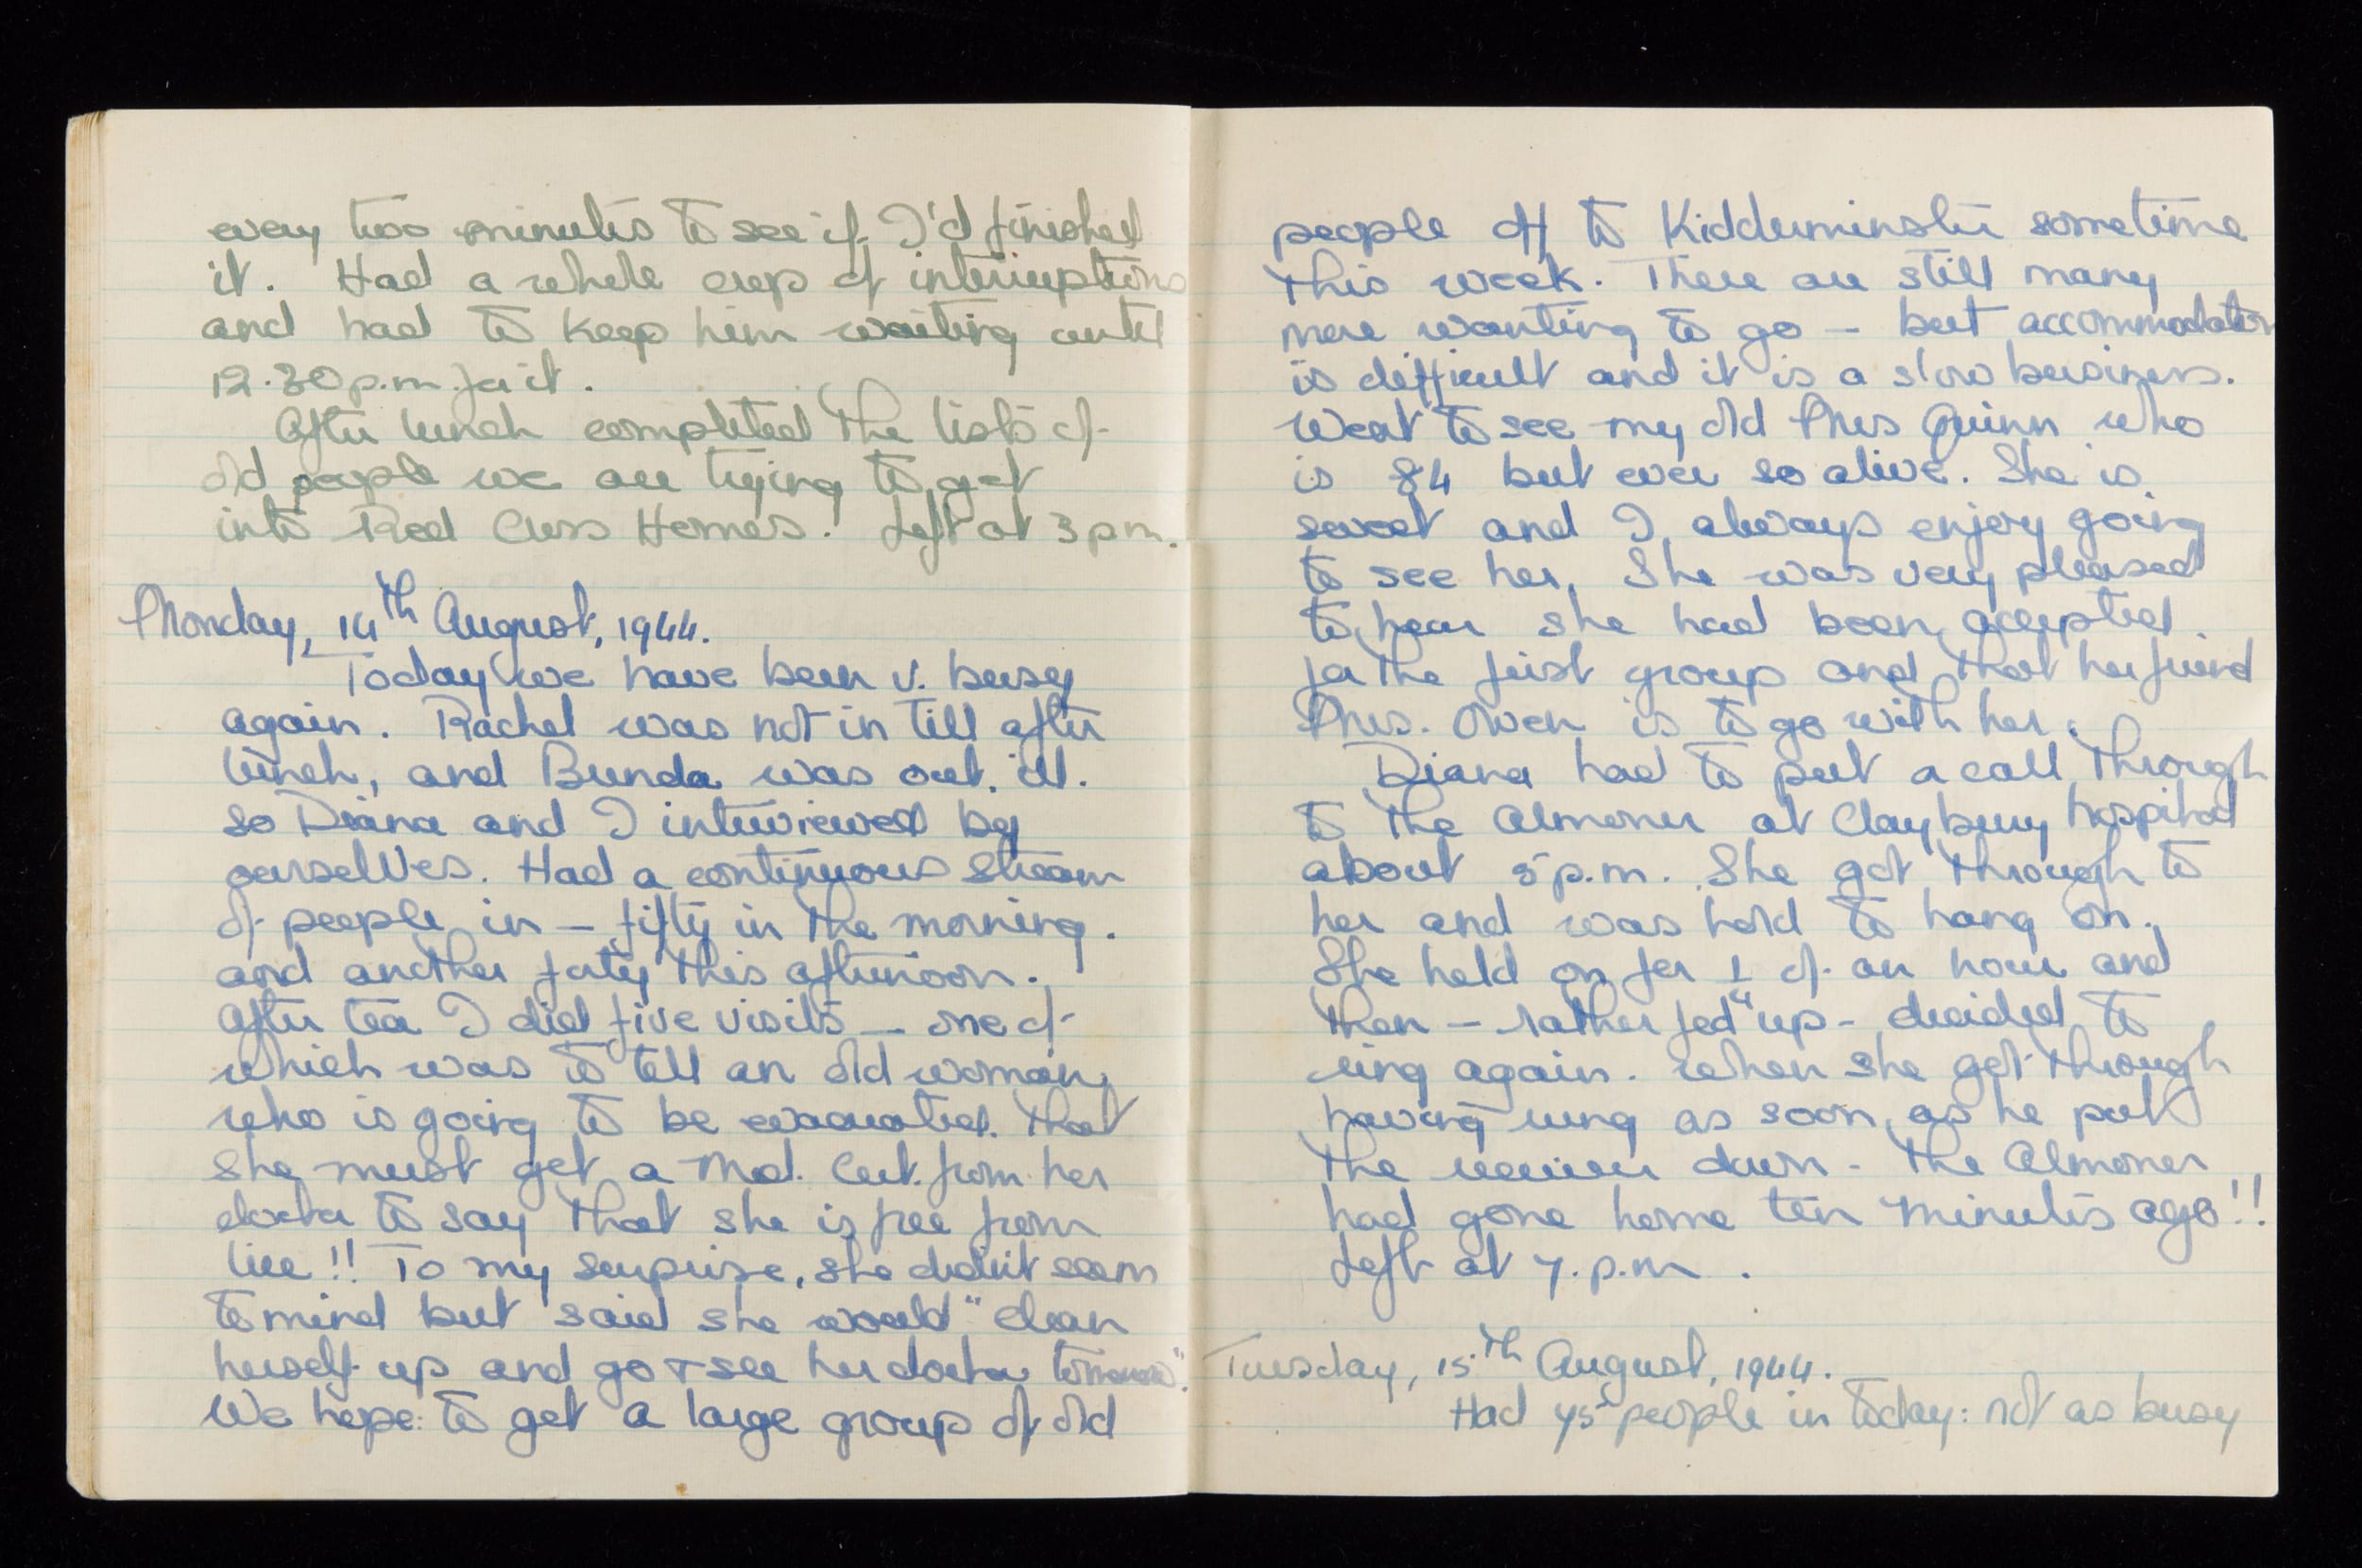 every two minutes to see if I'd finished
it. Had a whole crop of interruptions
and had to keep him waiting until
12.30 p.m. for it.
After lunch completed the lists of
old people we are trying to get
into Red Cross Homes. Left at 3 p.m.
Monday, 14th August, 1944.
Today we have been v. busy
again. Rachel was not in till after
lunch, and Bunda was out ill.
so Diana and I interviewed by
ourselves. Had a continuous stream
of people in – fifty in the morning.
and another forty this afternoon.
After tea I did five visits – one of
which was to tell an old woman,
who is going to be evacuated. that
she must get a Med. Cert. from her
doctor to say that she is free from
lice!! To my surprise, she didn't seem
to mind but said she would "clean
herself up and go & see her doctor tomorrow".
We hope to get a large group of old
people off to Kidderminster sometime
this week. There are still many
more wanting to go – but accommodation
is difficult and it is a slow business.
Went to see my old Mrs Quinn who
is 84 but ever so alive. She is
sweet and I always enjoy going
to see her. She was very pleased
to hear she had been accepted.
for the first group and that her friend
Mrs. Owen is to go with her.
Diana had to put a call through
to the Almoner at Claybury hospital
about 5 p.m. She got through to
her and was told to hang on.
She held on for ¼ of an hour and
then – rather fed up – decided to
ring again. When she got through
having rung as soon as he put
the receiver down – the Almoner
had gone home ten minutes ago!!
Left at 7. p.m.
Tuesday, 15th August, 1944.
Had 75 people in today: not as busy